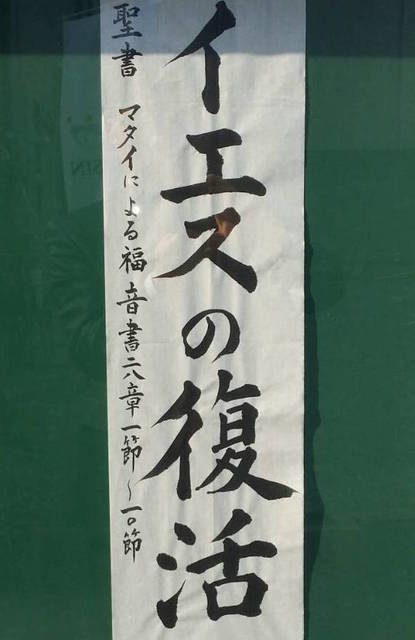 イエスの復活
聖書 マタイによる福音書二八章一節~一〇節